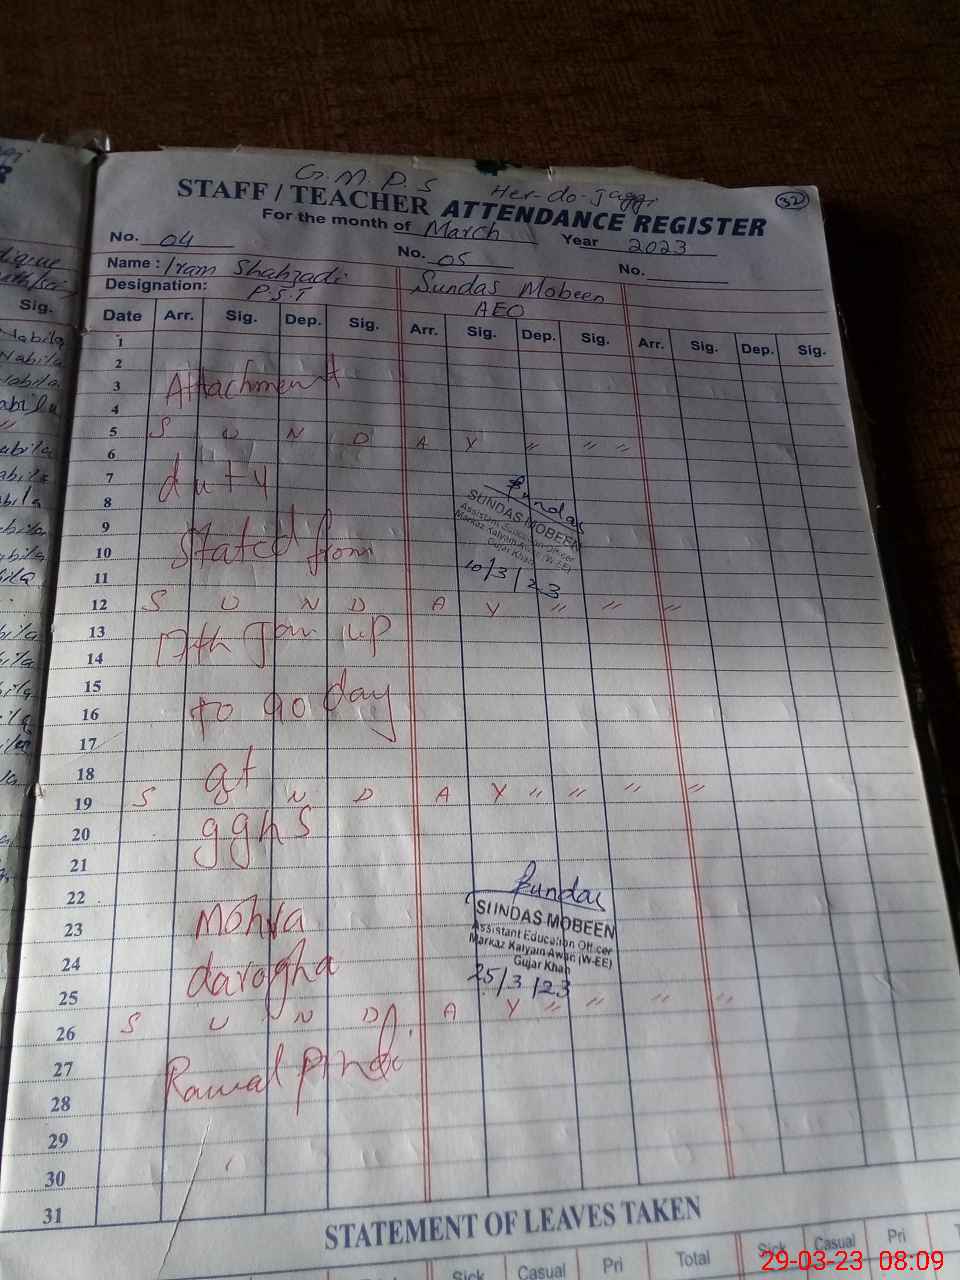 G.M.P.S Her-do-Jaggi
32
STAFF / TEACHER ATTENDANCE REGISTER
For the month of March Year 2023
No. 04 No. 05 No.
Name : Iram Shahzadi Sundas Mobeen
Designation: P.S.T AEO
Date Arr. Sig. Dep. Sig. Arr. Sig. Dep. Sig. Arr. Sig. Dep. Sig.
1
2
3 Attachment
4
5 S U N D A Y " " "
6
7 duty
8 Sundas
SUNDAS MOBEEN
Assistant Education Officer
Markaz Kalyam Awan (W-EE)
Gujar Khan
9
10 Stated from
11 10/3/23
12 S U N D A Y " " "
13 17th Jan up
14
15
16 to 90 day
17
18 at
19 S N D A Y " " " "
20 gghs
21
22 Sundas
SUNDAS MOBEEN
Assistant Education Officer
Markaz Kalyam Awan (W-EE)
Gujar Khan
23 Mohra
24 darogha
25 25/3/23
26 S U N D A Y " " " "
27 Rawal Pindi
28
29
30
31
STATEMENT OF LEAVES TAKEN
Sick Casual Pri Total Sick Casual Pri
29-03-23 08:09
Sig.
Nabila
Nabila